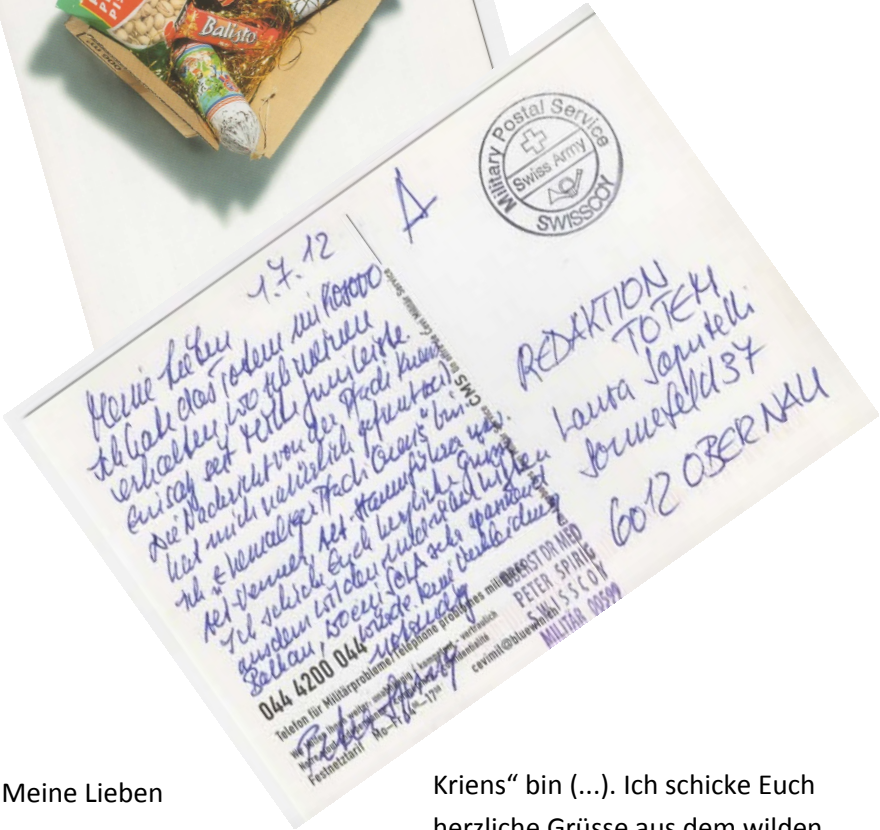 Balisto
Military Postal Service
Swiss Army
SWISSCOY
A
1.7.12
Meine Lieben
Ich habe das Totem im Kosovo
erhalten, wo ich meinen
Einsatz seit Mitte Juni leiste.
Die Nachricht von der Pfadi Kriens
hat mich natürlich gefreut, weil
ich "Ehemaliger Pfadi Kriens" bin
Ich schicke Euch herzliche Grüsse
aus dem wilden und
Balkan, wo ein SOLA sehr spannend
würde. Keine
Peter Spirig
REDAKTION
TOTEM
Laura Saputelli
Sonnefeld 37
6012 OBERNAU
OBERST DR MED
PETER SPIRIG
SWISSCOY
MILITÄR 00599
CMS
044 4200 044
Telefon für Militärprobleme/Telephone problèmes militaires
Festnetztarif Mo–Fr
Meine Lieben
Kriens“ bin (...). Ich schicke Euch
herzliche Grüsse aus dem wilden